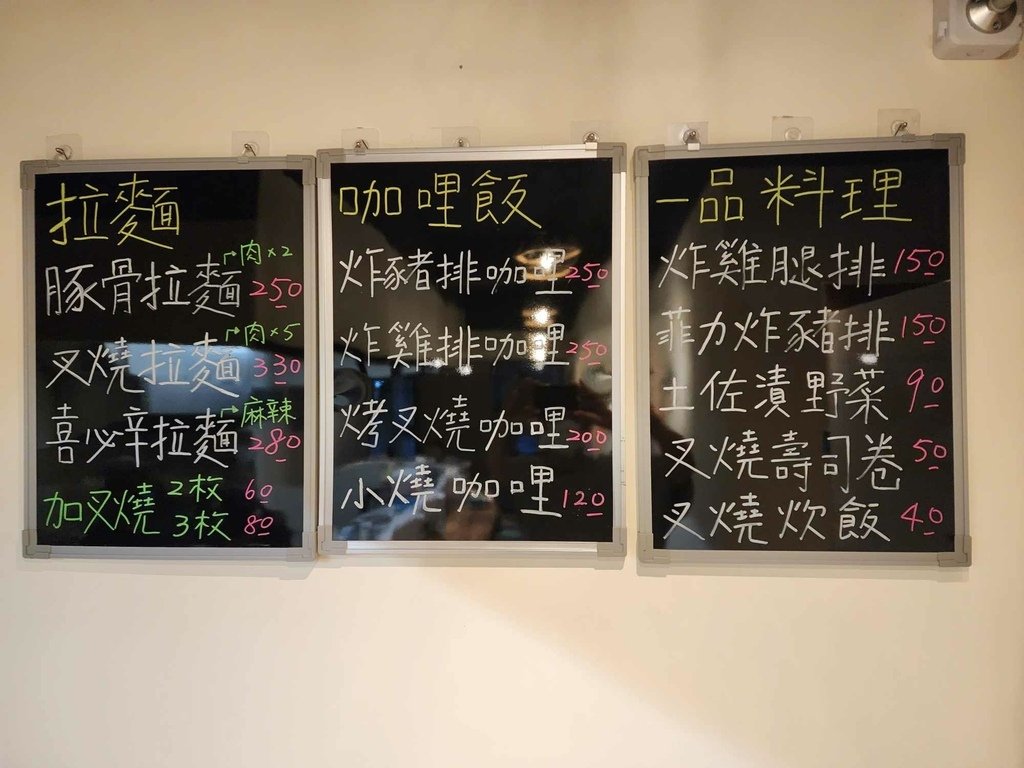 拉麵
→肉×2
豚骨拉麵 250
→肉×5
叉燒拉麵 330
→麻辣
喜心辛拉麵 280
加叉燒 2枚 60
3枚 80
咖哩飯
炸豬排咖哩 250
炸雞排咖哩 250
烤叉燒咖哩 200
小燒咖哩 120
一品料理
炸雞腿排 150
菲力炸豬排 150
土佐漬野菜 90
叉燒壽司卷 50
叉燒炊飯 40